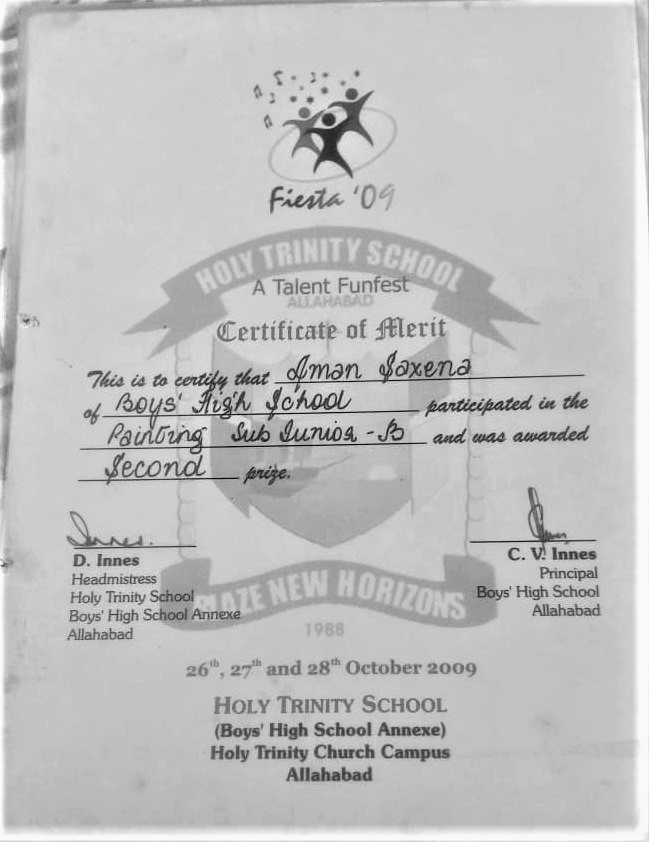 Fiesta '09
HOLY TRINITY SCHOOL
A Talent Funfest
ALLAHABAD
Certificate of Merit
This is to certify that Aman Saxena
of Boys' High School participated in the
Painting Sub Junior - B and was awarded
Second prize.
Innes.
D. Innes
Headmistress
Holy Trinity School
Boys' High School Annexe
Allahabad
C. V. Innes
Principal
Boys' High School
Allahabad
BLAZE NEW HORIZONS
1988
26th, 27th and 28th October 2009
HOLY TRINITY SCHOOL
(Boys' High School Annexe)
Holy Trinity Church Campus
Allahabad